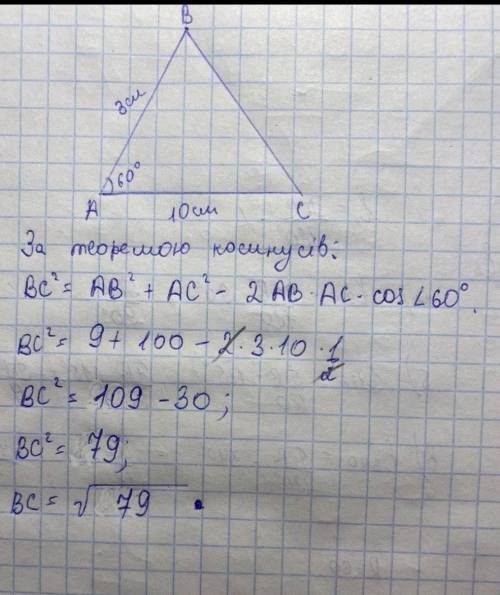 B
3см
60°
A 10см C
За теоремою косинусів:
BC² = AB² + AC² - 2AB · AC · cos∠60°.
BC² = 9 + 100 - 2 · 3 · 10 · 1/2
BC² = 109 - 30;
BC² = 79;
BC = √79 .